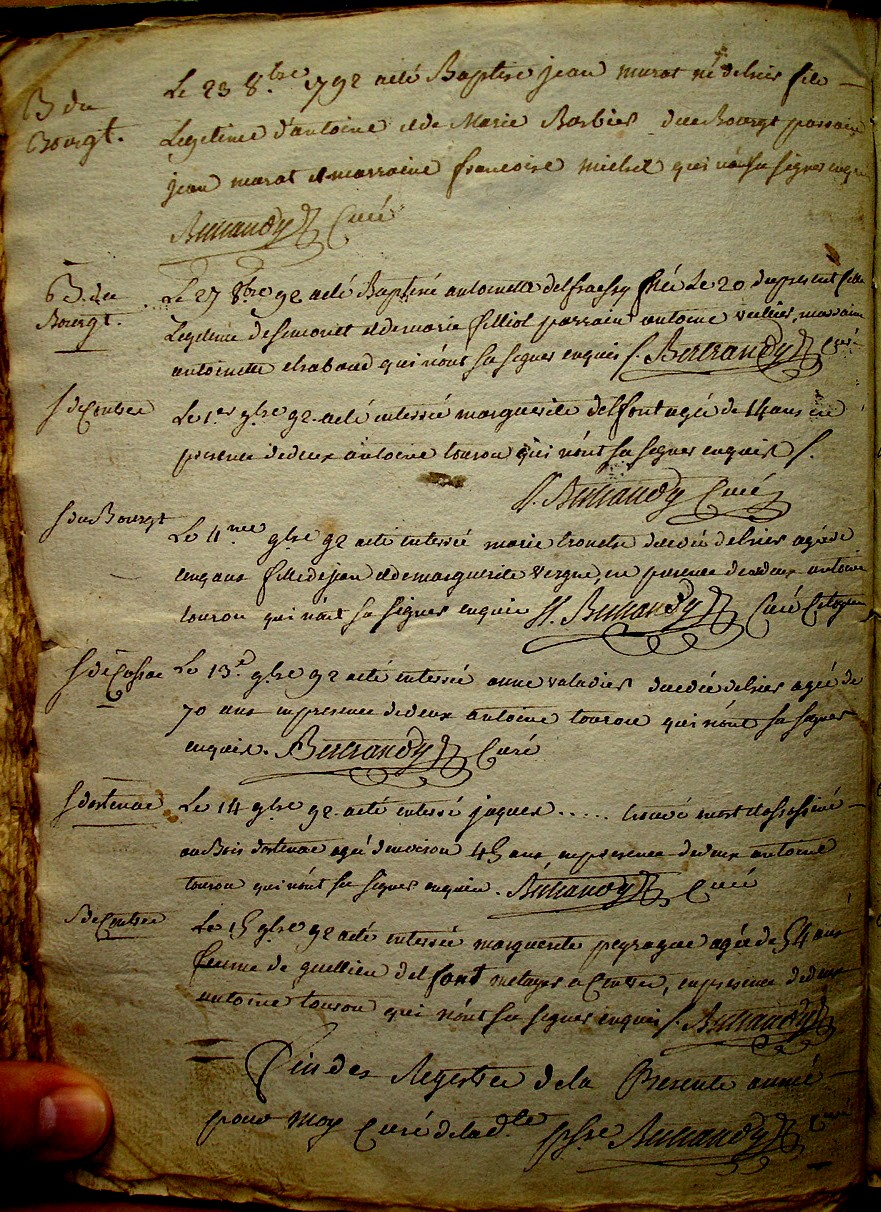 B du
Bourgt.
Le 23 8.bre 1792 a été Baptise jean murat né d'hier fils
Legitime d'antoine et de Marie Barbier du Bourgt parrain
jean murat et marraine francoise michel qui n'ont su signer enquis
Bertrandy Curé
B. du
Bourgt.
Le 27 8bre 92 a été Baptisé antoinette née Le 20 du present fille
Legitime de simonet et de marie filliol parrain antoine marraine
antoinette chabaud qui n'ont su signer enquis /. Bertrandy Curé
S de Contre
Le 1.er 9bre 92 a été interré marguerite delfont agée de 14 ans en
presence de deux antoine touron qui n'ont su signer enquis /.
Bertrandy Curé
S du Bourgt
Le 4me 9bre 92 a été interré marie decedée d'hier agée de
cinq ans fille de jean et de marguerite vergne, en presence de deux antoine
touron qui n'ont su signer enquis Bertrandy Curé Citoyen
S de Cassac
Le 13e 9bre 92 a été interré anne valadier decedée d'hier agée de
70 ans en presence de deux antoine touron qui n'ont su signer
enquis. Bertrandy Curé
S d'ostenac
Le 14 9bre 92 a été interré jaques ..... trouvé mort et assassiné
au Bois d'ostenac agé d'environ 45 ans, en presence de deux antoine
touron qui n'ont su signer enquis. Bertrandy Curé
S de Contre
Le 15 9bre 92 a été interré marguerite peyrague agée de 54 ans
femme de guillien delfont metayer a Contre, en presence de deux
antoine touron qui n'ont su signer enquis /. Bertrandy
Fin des Registre de la Presente année
pour moy Curé de la d.te Bertrandy Curé